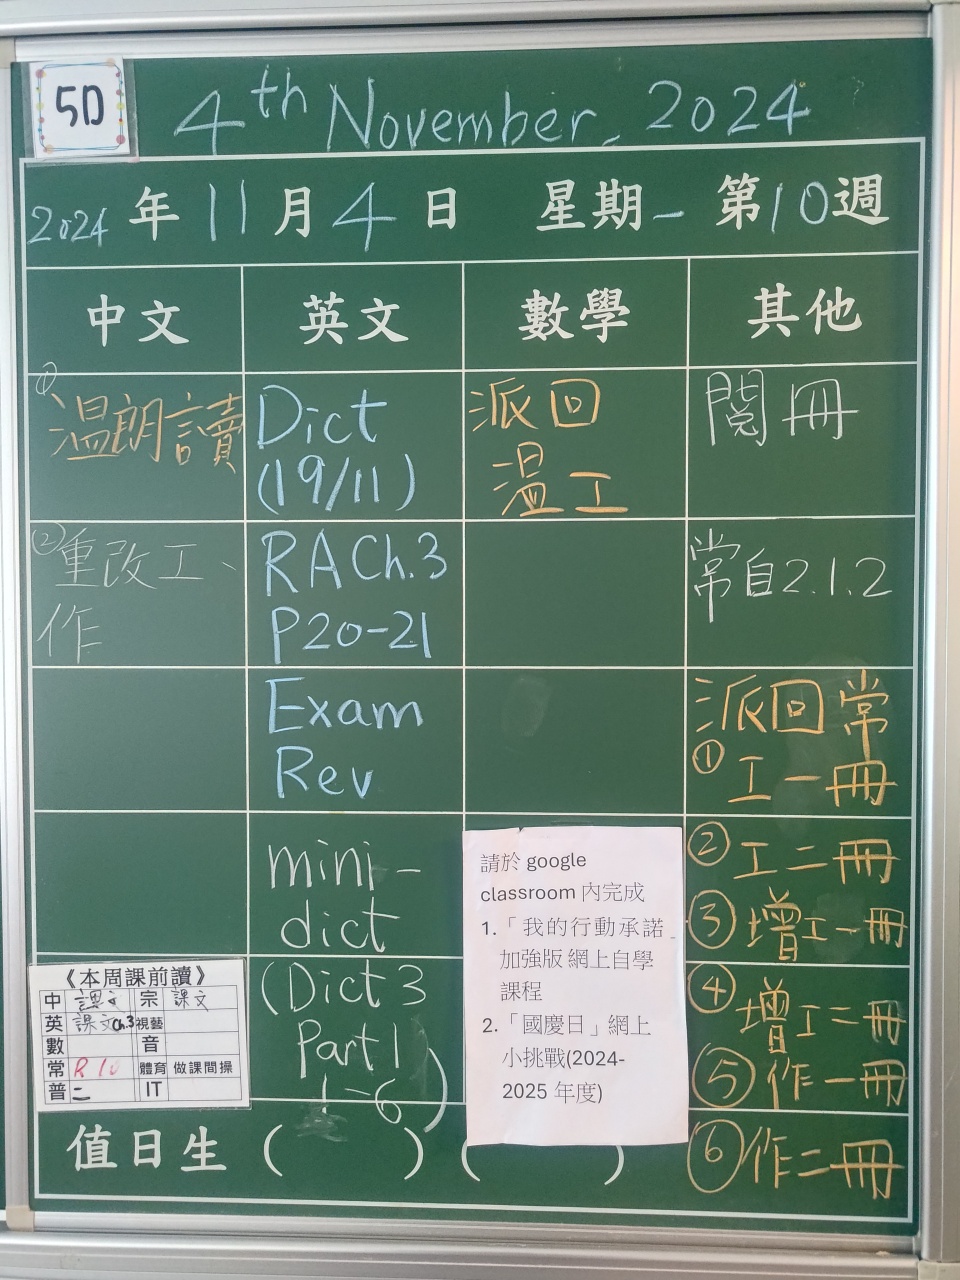 5D
4th November, 2024
2024 年 11 月 4 日 星期一 第10週
中文 英文 數學 其他
① 温朗讀
② 重改工、
作
Dict
(19/11)
RA Ch.3
P20-21
Exam
Rev
mini-
dict
(Dict 3
Part 1
1-6)
派回
温工
閱冊
常自2.1.2
派回常
① 工一冊
② 工二冊
③ 增工一冊
④ 增工二冊
⑤ 作一冊
⑥ 作二冊
請於 google
classroom 內完成
1.「我的行動承諾
加強版 網上自學
課程
2.「國慶日」網上
小挑戰(2024-
2025 年度)
《本周課前讀》
中 課文 宗 課文
英 課文Ch.3 視藝
數 音
常 R 10 體育 做課間操
普 二 IT
值日生 ( ) ( )